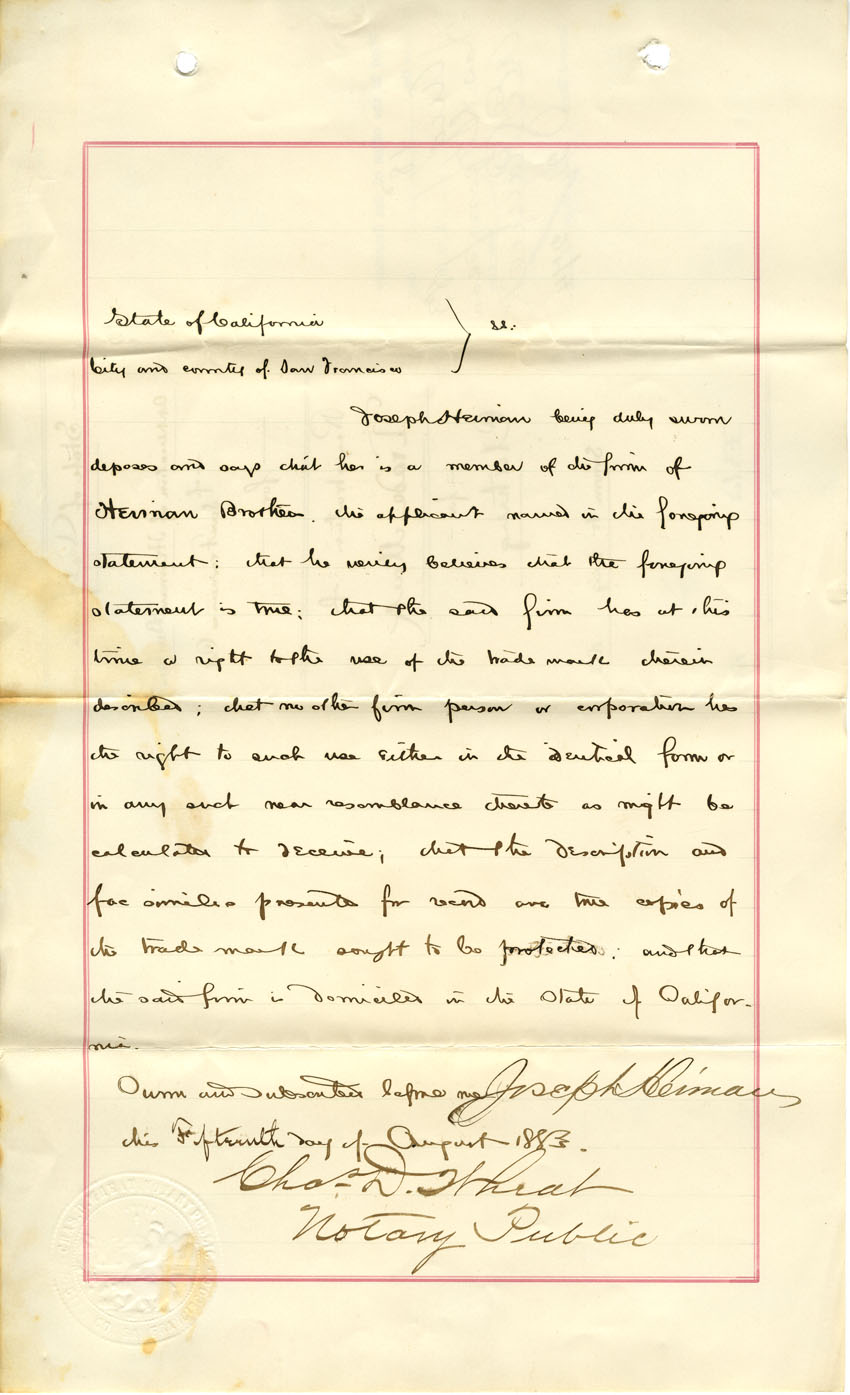 State of California } ss:
City and county of San Francisco
Joseph Heiman being duly sworn
deposes and says that he is a member of the firm of
Heiman Brothers, the applicant named in the foregoing
statement; that he verily believes that the foregoing
statement is true; that the said firm has at this
time a right to the use of the trade mark therein
described; that no other firm person or corporation has
the right to such use either in the identical form or
in any such near resemblance thereto as might be
calculated to deceive; that the description and
fac similes presented for record are true copies of
the trade mark sought to be protected; and that
the said firm is domiciled in the State of Califor-
nia.
Sworn and subscribed before me Joseph Heiman
this Fifteenth day of August 1883.
Chas. D. Wheat
Notary Public